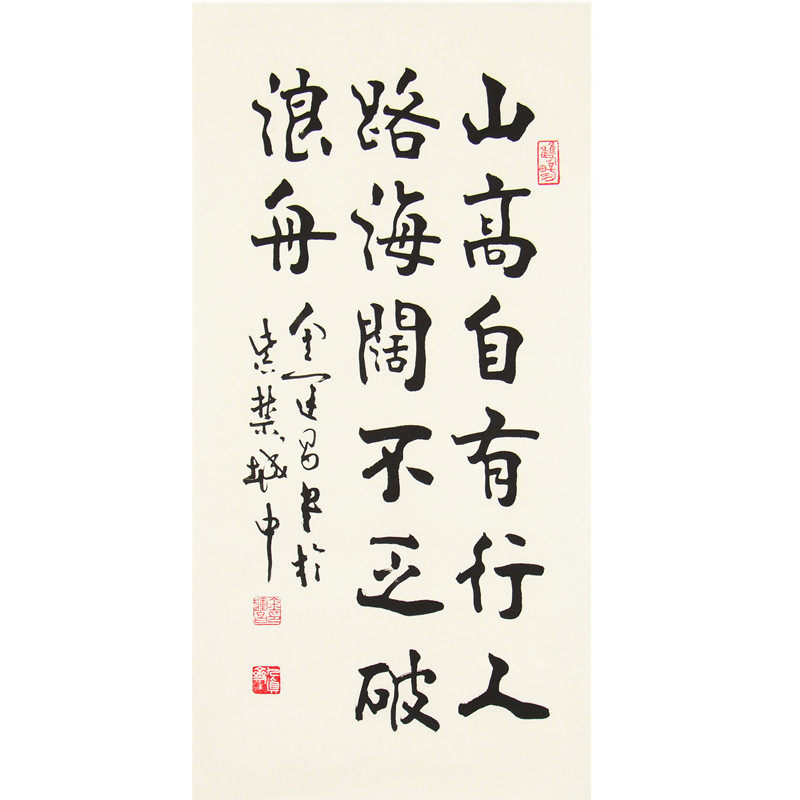 山高自有行人
路海阔不乏破
浪舟
金运昌书於
紫禁城中